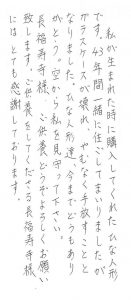 私が生まれた時に購入してくれたひな人形
です。43年間一緒に生活してまいりましたが
ガラスケースが壊れ、やむなく手放すことと
なりました。ひな人形達、今までどうもあり
がとう。空から私を見守って下さい。
長福寿寺様、ご供養どうぞよろしくお願い
致します。ご供養をしてくださる長福寿寺様
にはとても感謝しております。